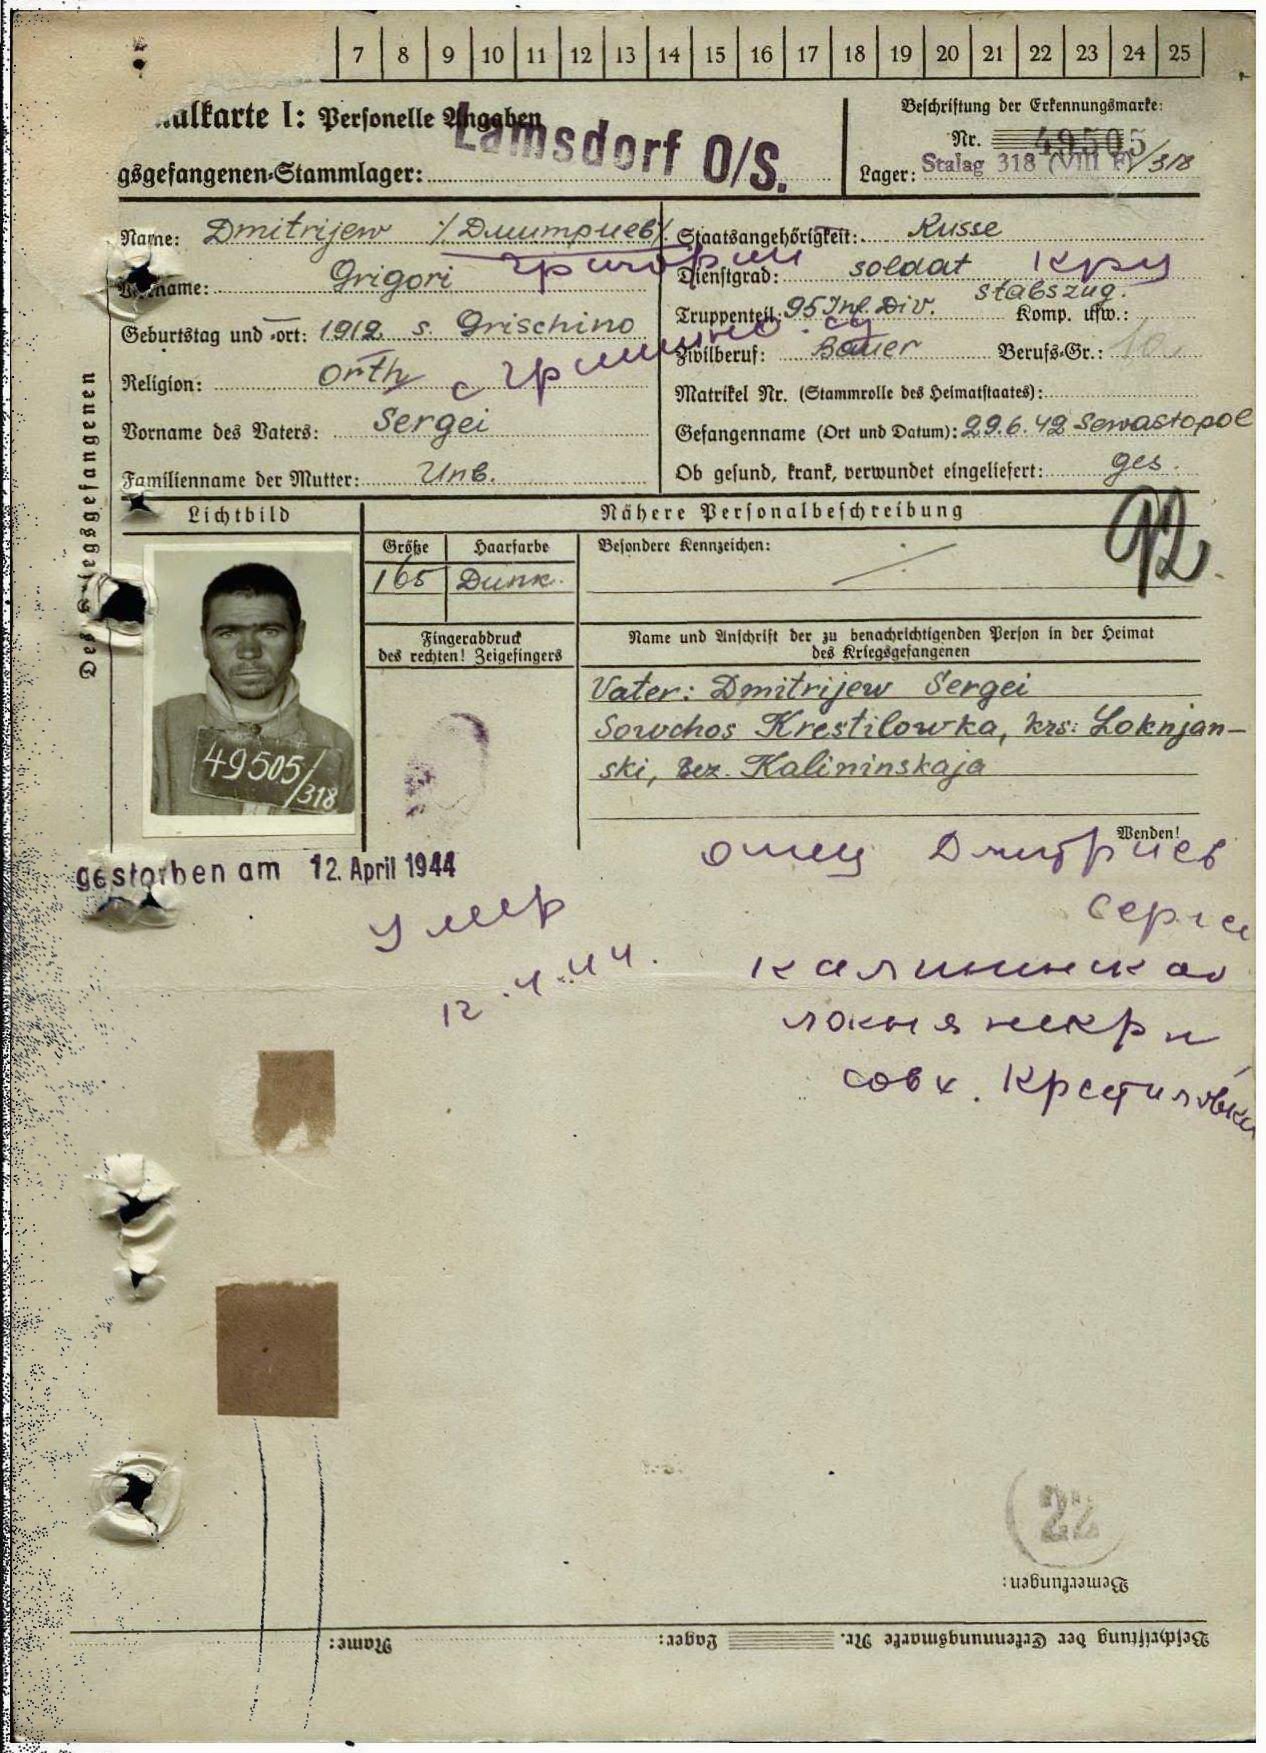 7 8 9 10 11 12 13 14 15 16 17 18 19 20 21 22 23 24 25
nalkarte I: Personelle Angaben
Lamsdorf O/S.
gsgefangenen-Stammlager:
Beschriftung der Erkennungsmarke:
Nr. 49505
Lager: Stalag 318 (VIII F)/318
Name: Dmitrijew /Дмитриев/
Vorname: Grigori Григорий
Geburtstag und -ort: 1912 s. Grischino
Religion: Orth с Гришино
Vorname des Vaters: Sergei
Familienname der Mutter: Unb.
Staatsangehörigkeit: Russe
Dienstgrad: soldat кру
Truppenteil: 95 Inf. Div. Komp. usw.: stabszug.
Zivilberuf: Bauer Berufs-Gr.: 10
Matrikel Nr. (Stammrolle des Heimatstaates):
Gefangenname (Ort und Datum): 29.6.42 Sewastopol
Ob gesund, krank, verwundet eingeliefert: ges.
Des Kriegsgefangenen
Lichtbild
Nähere Personalbeschreibung
Größe Haarfarbe
165 Dunk.
Besondere Kennzeichen:
92.
Fingerabdruck
des rechten! Zeigefingers
Name und Anschrift der zu benachrichtigenden Person in der Heimat
des Kriegsgefangenen
Vater: Dmitrijew Sergei
Sowchos Krestilowka, krs: Loknjan-
ski, Bez. Kalininskaja
49505/318
Wenden!
gestorben am 12. April 1944
умер
12.4.44.
отец Дмитриев
Серге
Калининская
совх. Крестиловка
22
Bemerkungen:
Beschriftung der Erkennungsmarke Nr. Lager: Name: